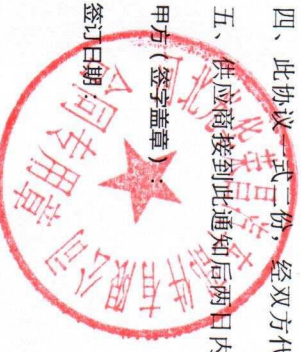 四、此协议一式二份，经双方代
五、供应商接到此通知后两日内
甲方（签字盖章）：
签订日期：
合同专用章
件有限公司